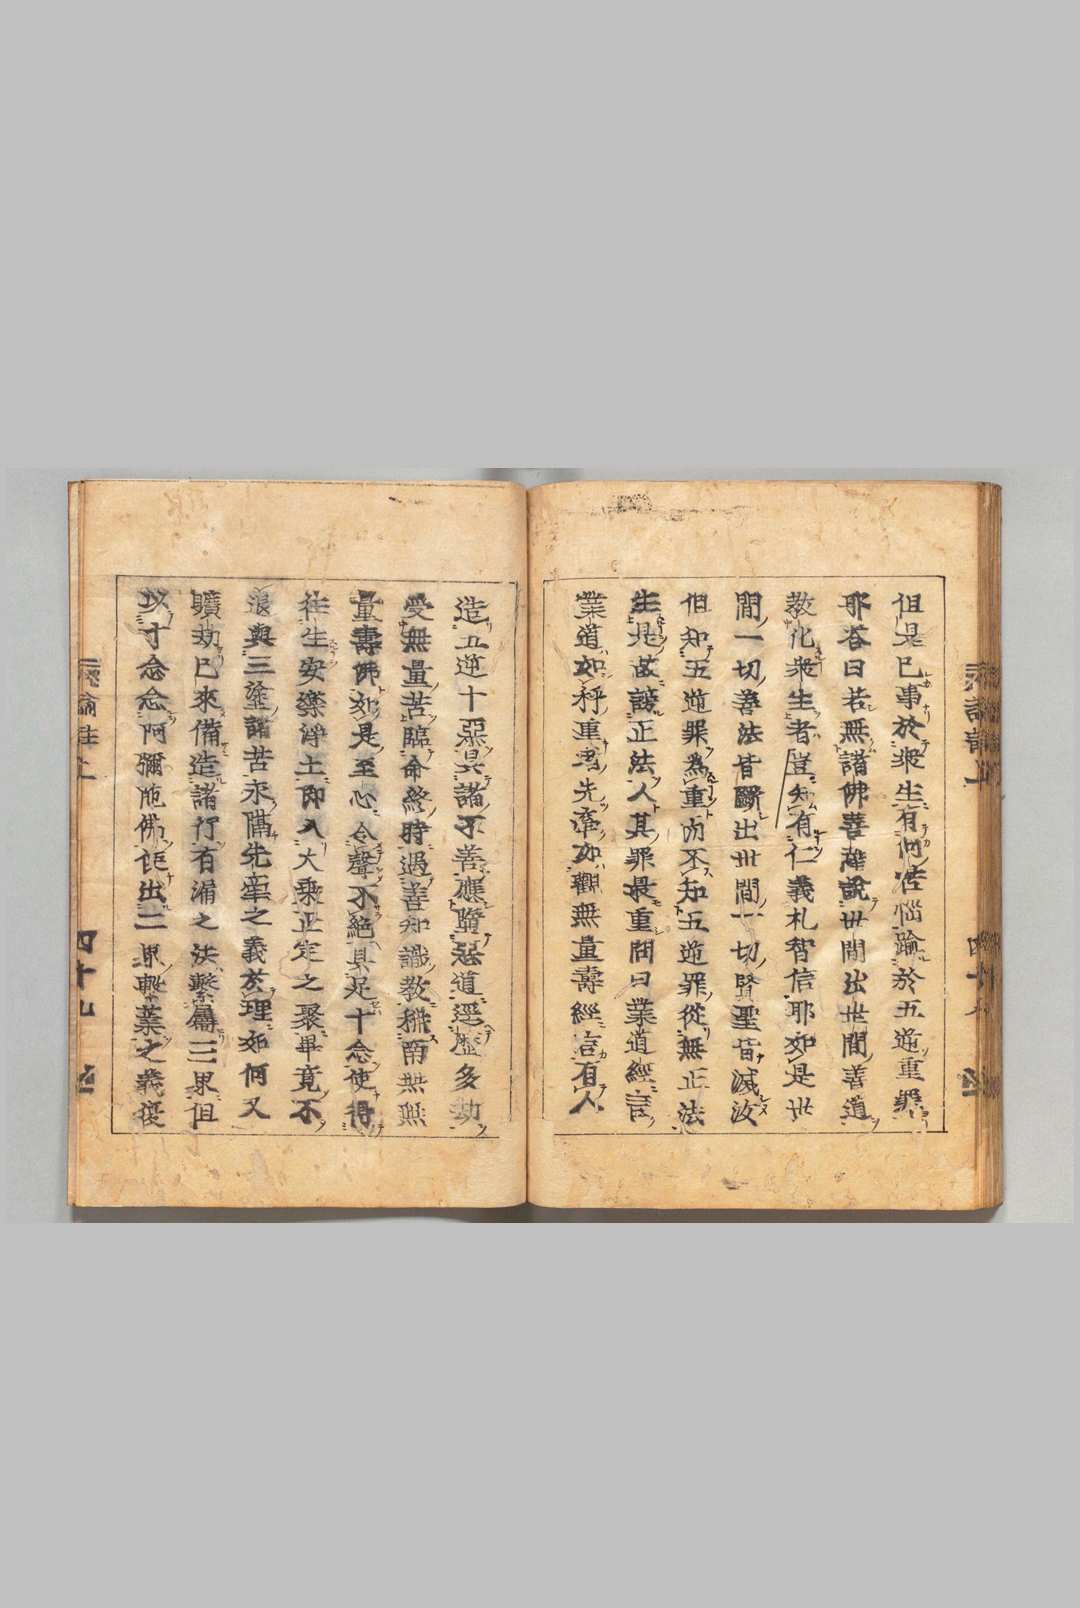 但是已事於衆生有何苦惱踰於五逆重罪
耶答曰若無諸佛菩薩說世間出世間善道
教化衆生者豈知有仁義礼智信耶如是世
間一切善法皆斷出世間一切賢聖皆滅汝
但知五逆罪為重而不知五逆罪從無正法
生是故謗正法人其罪最重問曰業道經言
業道如秤重者先牽如觀無量壽經言有人
造五逆十惡具諸不善應墮惡道逕歷多劫
受無量苦臨命終時遇善知識教稱南無無
量壽佛如是至心令聲不絕具足十念便得
往生安樂淨土即入大乘正定之聚畢竟不
退與三塗諸苦永隔先牽之義於理如何又
曠劫已來備造諸行有漏之法繫屬三界但
以十念念阿彌陀佛便出三界繫業之義復
論註上
四十九